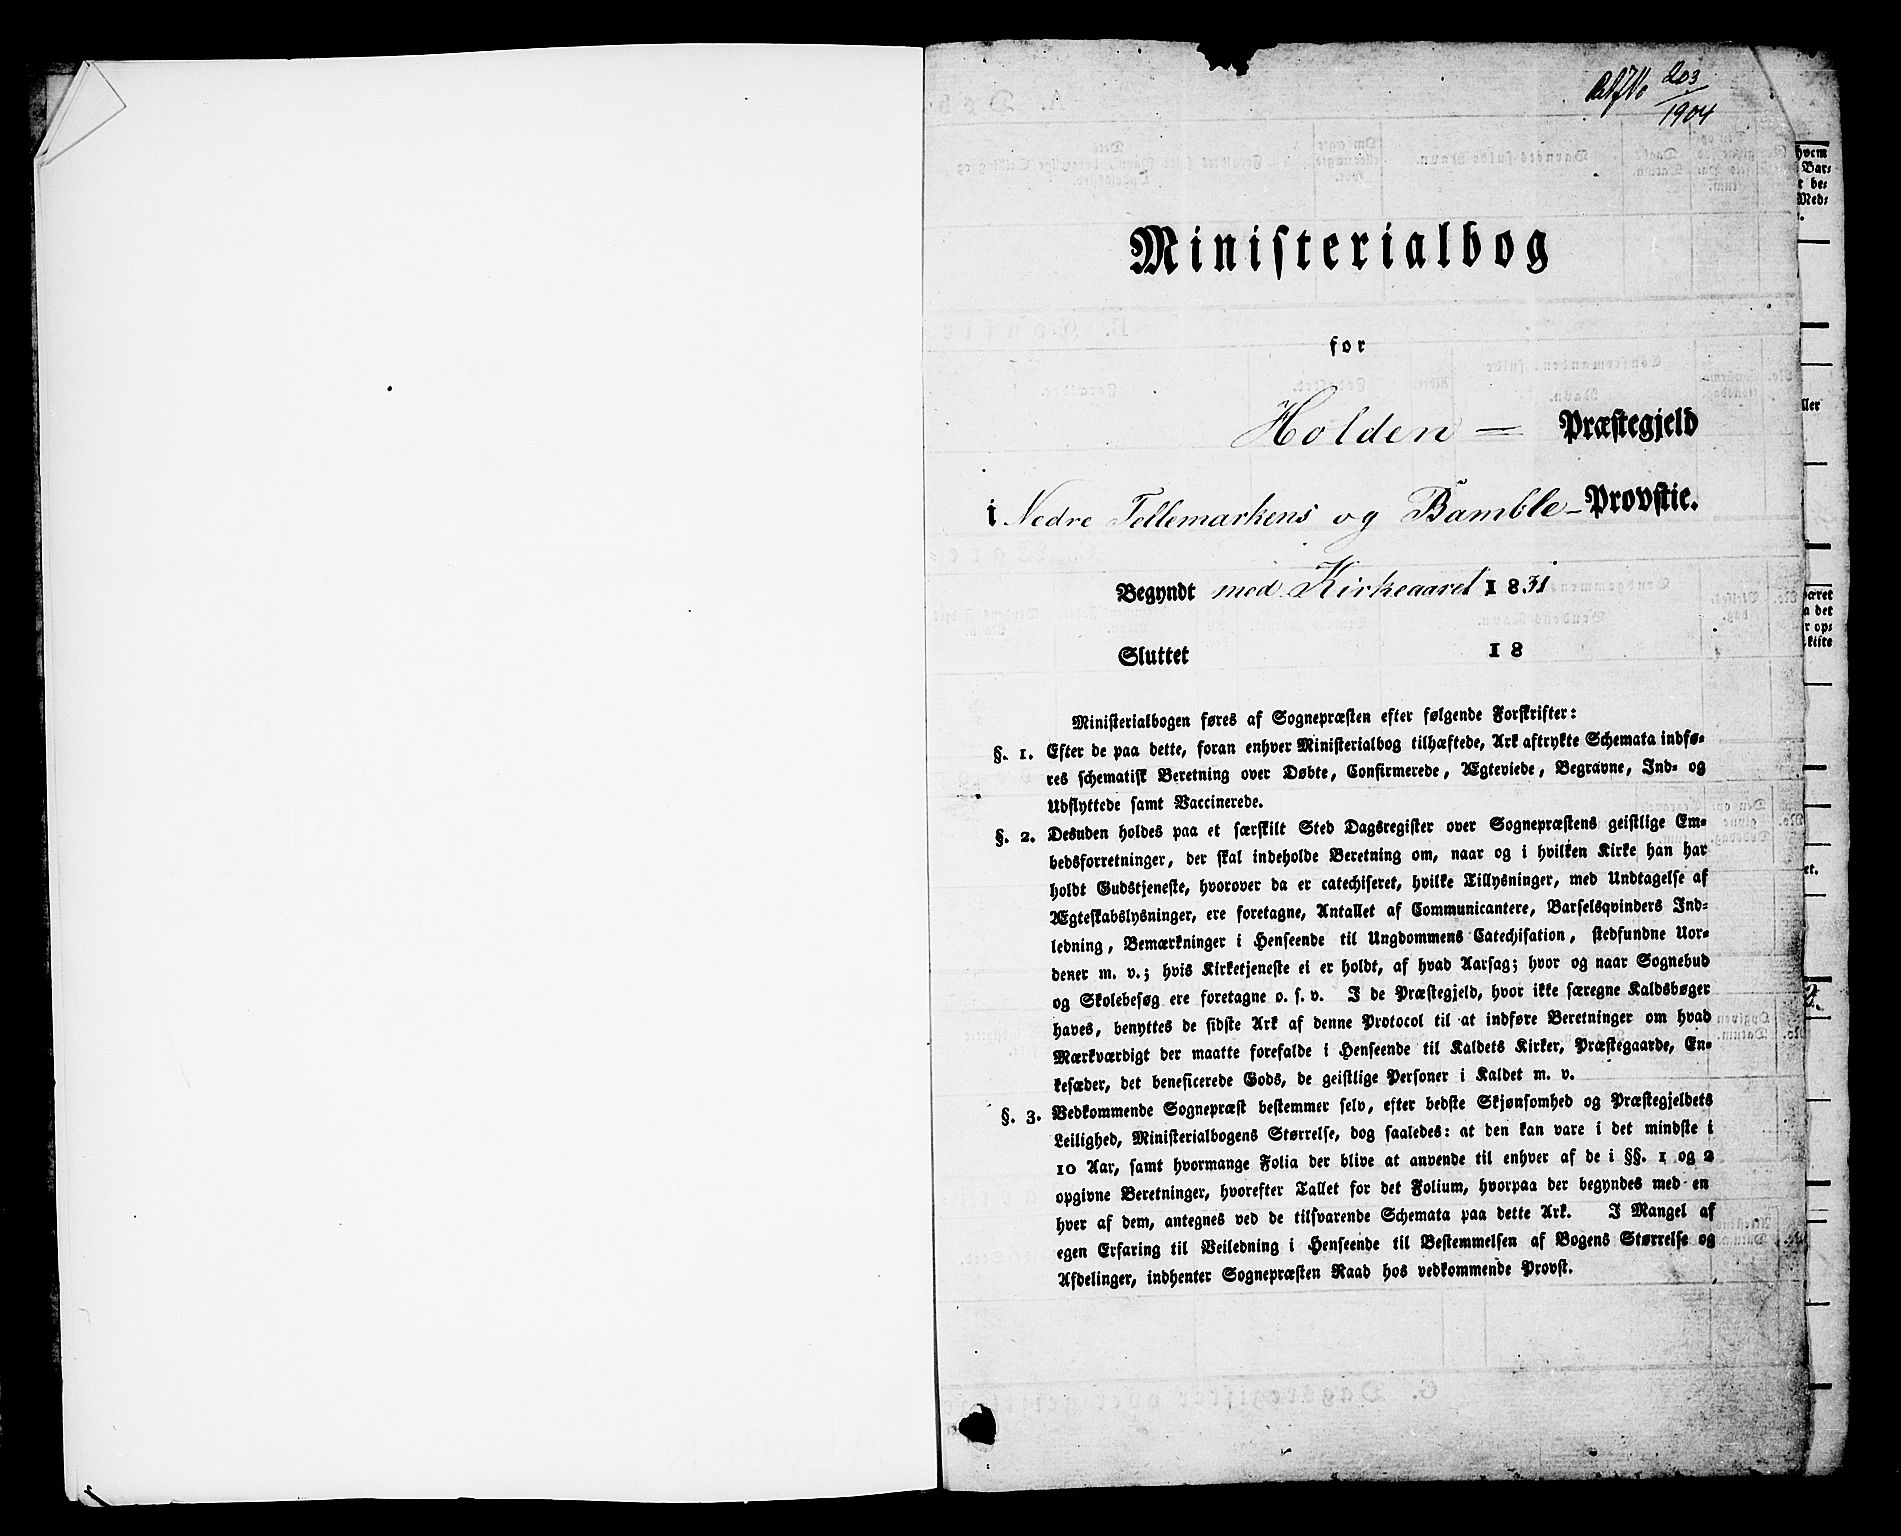 203
1904
Ministerialbog
for
Holden = Præstegjeld
i Nedre Tellemarkens og Bamble- Provstie.
Begyndt med Kirkeaaret 1831
Sluttet 18
Ministerialbogen føres af Sognepræsten efter følgende Forskrifter:
§. 1. Efter de paa dette, foran enhver Ministerialbog tilhæftede, Ark aftrykte Schemata indfø-
res schematisk Beretning over Døbte, Confirmerede, Ægteviede, Begravne, Ind- og
Udflyttede samt Vaccinerede.
§. 2. Desuden holdes paa et særskilt Sted Dagsregister over Sognepræstens geistlige Em-
bedsforretninger, der skal indeholde Beretning om, naar og i hvilken Kirke han har
holdt Gudstjeneste, hvorover da er catechiseret, hvilke Tillysninger, med Undtagelse af
Ægteskabslysninger, ere foretagne, Antallet af Communicantere, Barselsqvinders Ind-
ledning, Bemærkninger i Henseende til Ungdommens Catechisation, stedfundne Uor-
dener m. v.; hvis Kirketjeneste ei er holdt, af hvad Aarsag; hvor og naar Sognebud
og Skolebesøg ere foretagne o. s. v. I de Præstegjeld, hvor ikke særegne Kaldsbøger
haves, benyttes de sidste Ark af denne Protocol til at indføre Beretninger om hvad
Mærkværdigt der maatte forefalde i Henseende til Kaldets Kirker, Præstegaarde, En-
kesæder, det beneficerede Gods, de geistlige Personer i Kaldet m. v.
§. 3. Vedkommende Sognepræst bestemmer selv, efter bedste Skjønsomhed og Præstegjeldets
Leilighed, Ministerialbogens Størrelse, dog saaledes: at den kan vare i det mindste i
10 Aar, samt hvormange Folia der blive at anvende til enhver af de i §§. 1 og 2
opgivne Beretninger, hvorefter Tallet for det Folium, hvorpaa der begyndes med en
hver af dem, antegnes ved de tilsvarende Schemata paa dette Ark. I Mangel af
egen Erfaring til Veiledning i Henseende til Bestemmelsen af Bogens Størrelse og
Afdelinger, indhenter Sognepræsten Raad hos vedkommende Provst.
hvem
Bar-
be-
Med-
ller
været
a det
r op-
kiste
et.